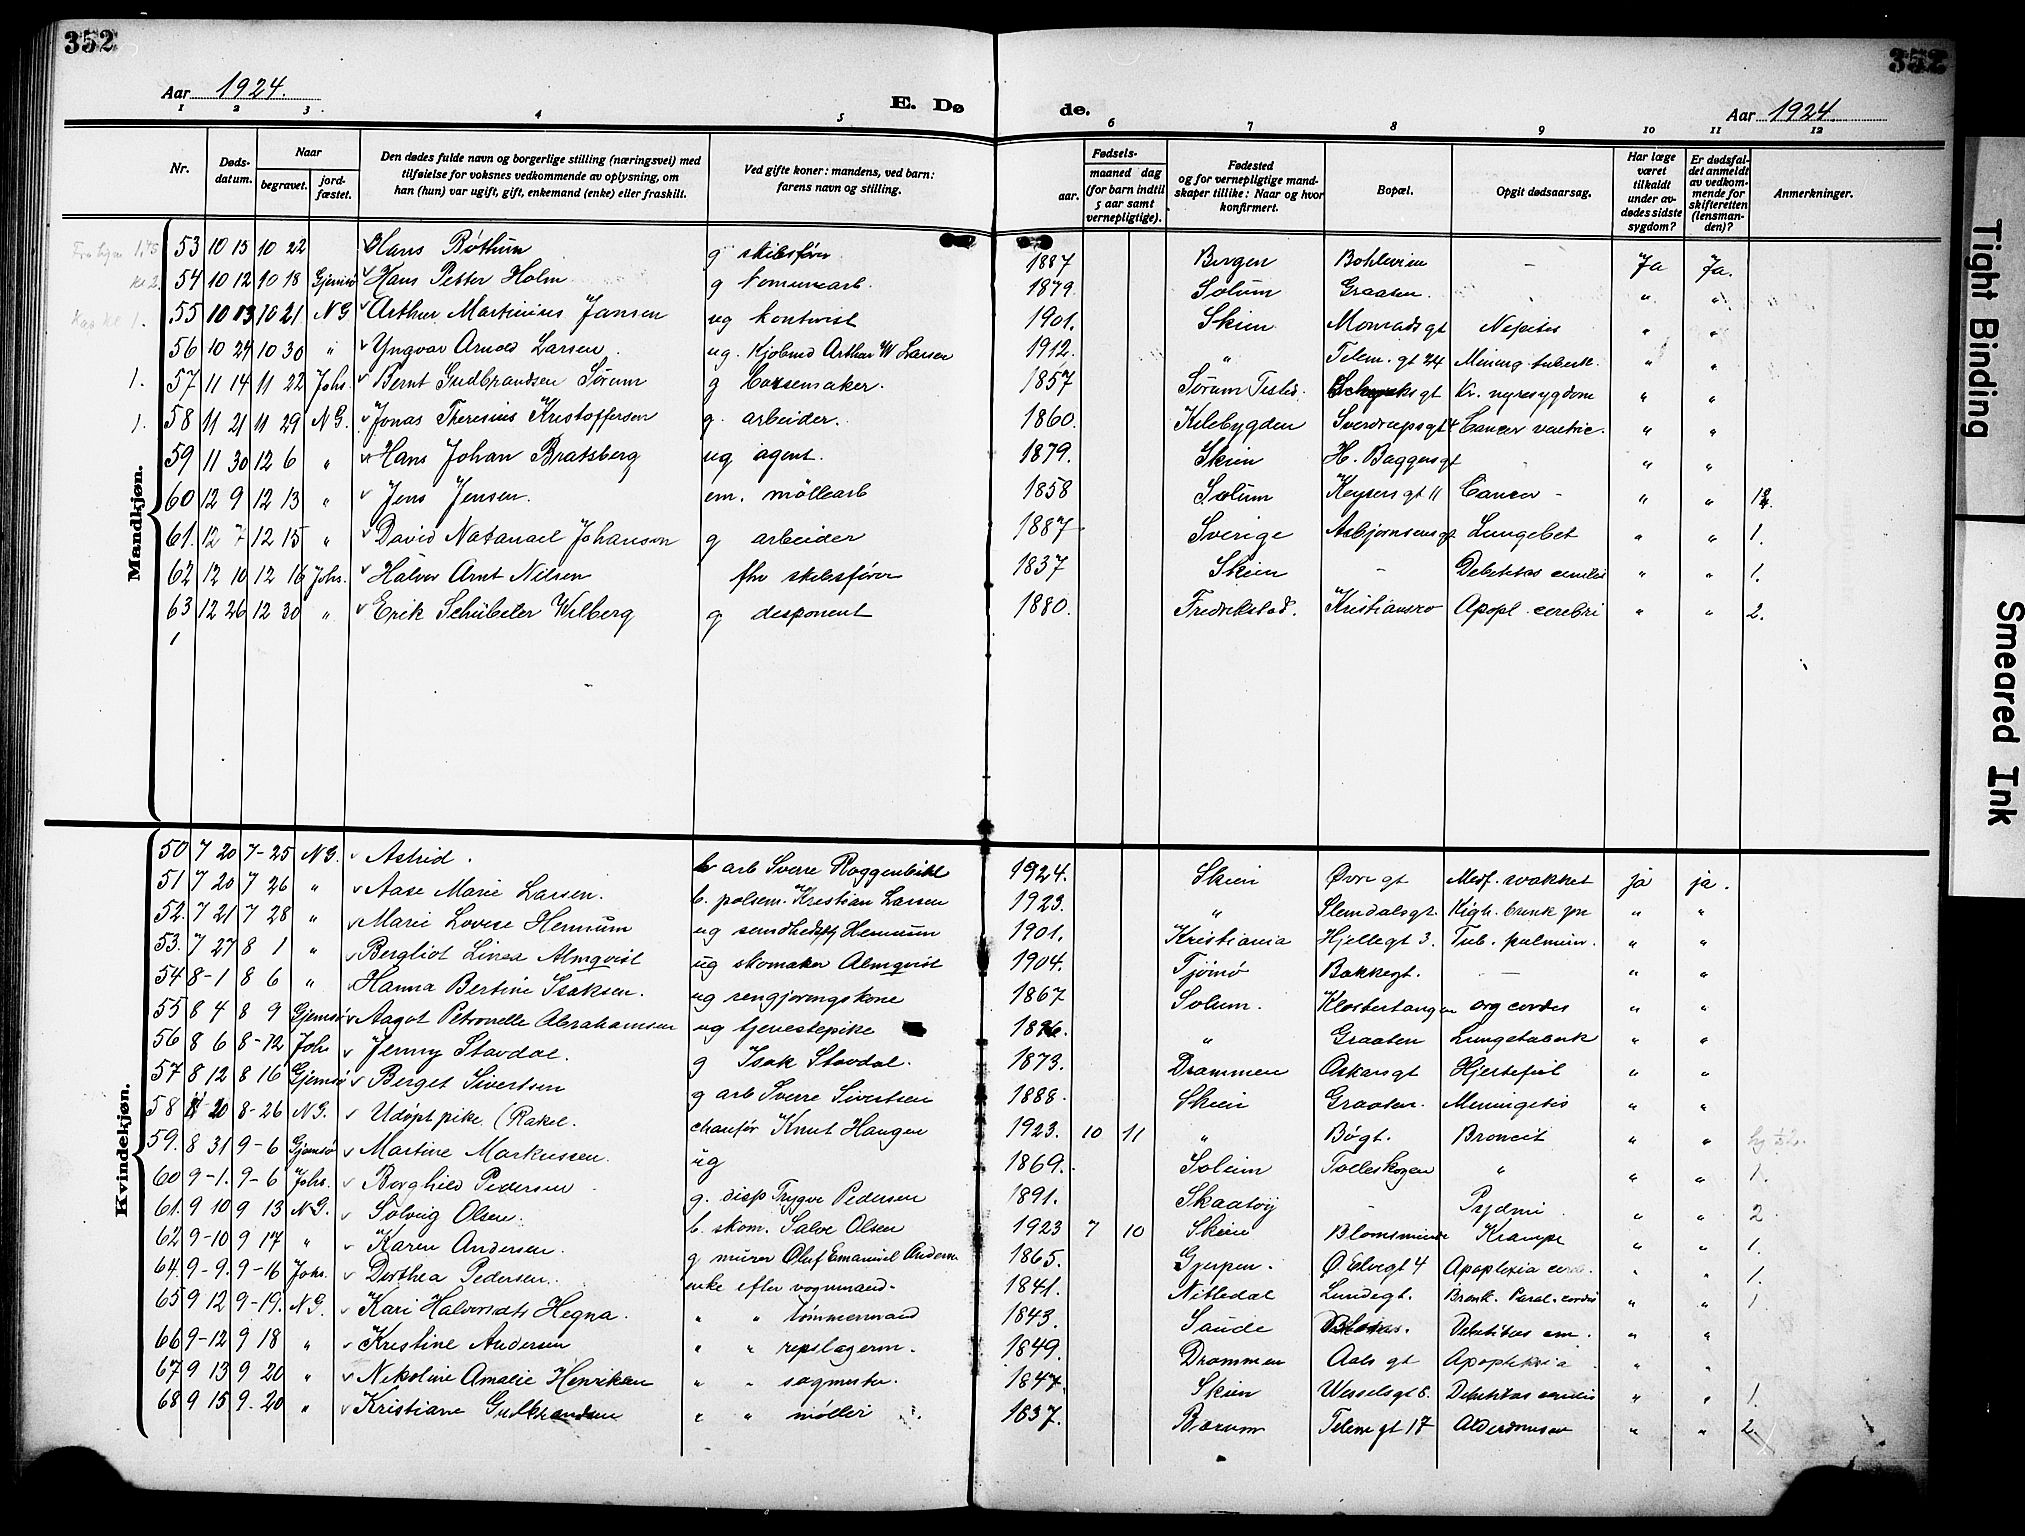 352
352
Aar 1924.
E. Dø de.
Aar 1924
1 2 3 4 5 6 7 8 9 10 11 12
Nr. Døds-datum. Naar begravet. jord-fæstet. Den dødes fulde navn og borgerlige stilling (næringsvei) med tilføielse for voksnes vedkommende av oplysning, om han (hun) var ugift, gift, enkemand (enke) eller fraskilt. Ved gifte koner: mandens, ved barn: farens navn og stilling. Fødsels- aar. maaned dag (for barn indtil 5 aar samt vernepligtige). Fødested og for vernepligtige mand-skaper tillike: Naar og hvor konfirmert. Bopæl. Opgit dødsaarsag. Har læge været tilkaldt under av-dødes sidste sygdom? Er dødsfal-det anmeldt av vedkom-mende for skifteretten (lensman-den)? Anmerkninger.
Mandkjøn.
53 10 15 10 22 Hans Bøthun g skibsfører 1887 Bergen - Ja Ja.
54 10 12 10 18 Gjemsø Hans Petter Holm g kommunearb. 1879. Solum Graaten. - " "
55 10 13 10 21 N G Arthur Martinius Jansen ug kontorist 1901. Skien Monradsgt Nefritis " "
56 10 24 10 30 " Yngvar Arnold Larsen ug. Kjøbmd Arthur W Larsen 1912. " Telem. gt 24 Mening. tuberk. " "
1. 57 11 14 11 22 Johs. Bernt Gudbrandsen Sørum g børsemaker. 1857 Sørum Kr. nyresygdom " "
1. 58 11 21 11 29 N G. Jonas Theresius Kristoffersen g. arbeider. 1860. Kilebygden Sverdrupsgt Cancer ventric. " "
59 11 30 12 6 " Hans Johan Bratsberg ug agent. 1879. Skien H. Baggersgt - " "
60 12 9 12 13 " Jens Jensen. em. møllearb 1858 Solum Keysersgt 11 Cancer - " "
61. 12 7 12 15 " David Natanael Johanson g arbeider 1887 Sverige Asbjørnsensgt Lungebet " " 1.
62 12 10 12 16 Johs. Halvor Arnt Nilsen fhv skibsfører 1837 Skien - Debilitas senilis " " 1.
63 12 26 12 30 " Erik Schübeler Wilberg g disponent 1880. Fredrikstad. Kristiansro Apopl. cerebri " " 2.
Kvindekjøn.
50 7 20 7-25 N G. Astrid. b arb Sverre Roggenbikl 1924. Skien Øvre gt Medf. svakhet ja ja.
51 7 20 7 26 " Aase Marie Larsen. b. polsem. Kristian Larsen 1923. " Slemdalsgt. Kigh. bronk pn " "
52. 7 21 7 28 " Marie Lovise Hennum ug sundhedsf Hennum 1901. Kristiania Hjellegt 3. Tub. pulmon. " "
53. 7 27 8 1 " Bergliot Linea Almqvist ug skomaker Almqvist 1904. Tjømø Bakkegt. - " "
54 8-1 8 6 " Hanna Bertine Isaksen. ug rengjøringskone 1867 Solum. Klostertangen org cordis " "
55 8 4 8 9 Gjemsø Aagot Petronelle Abrahamsen ug tjenestepike " Graaten Lungetuberk " "
56 8 6 8-12 Joh. Jenny Stavdal. g Isak Stavdal. 1873. Drammen Oskarsgt Hjertefeil " "
57 8 12 8 16 Gjemsø Berget Sivertsen g arb Sverre Sivertsen 1888. Skien Graaten. Meningitis " "
58 20 8-26 N G. Udøpt pike. (Rakel. chaufør Knut Haugen 1923. 10 11 " Bøgt. Broncit " "
59. 8 31 9-6 Gjemsø Martine Markussen. ug 1869. Solum Tolleskogen " " "
60 9-1. 9-6 Johs. Borghild Pedersen g. disp Trygve Pedersen 1891. Skaatøy - Pydmi " " 1.
61. 9 10 9 13 N G. Solveig Olsen. b. skom. Salve Olsen 1923 7 10 Skien Krampe " " 2
62 9-10 9 17 " Karen Andersen. g murer Oluf Emanuel Anders 1865. Gjerpen. Ø. Elvegt 4 Apoplexia cereb. " " 1.
64. 9-9. 9-16 Johs. Dorthea Pedersen. enke efter vognmand. 1841. Nittedal Lundegt. Bronk. Paral. cordis " " 1.
65 9 12 9-19. N G. Kari Halvorsdtr Hegna. " " tømmermand 1843. Saude Debilitas sen. " " 1
66 9-12 9 18 " Kristine Andersen " " repslagerm. 1849. Drammen Aals gt Apopleksia " "
67 9 13 9 20 " Nikoline Amalie Henriksen " " sagmester. 1847. Skien Wesselsgt 8. Debilitas senilis " " 1.
68 9 15 9. 20 " Kristiane Gulbrandsen " " møller 1837. Bærum Telem gt 17 Alderdomssv " " 2
Tight Binding
Smeared Ink